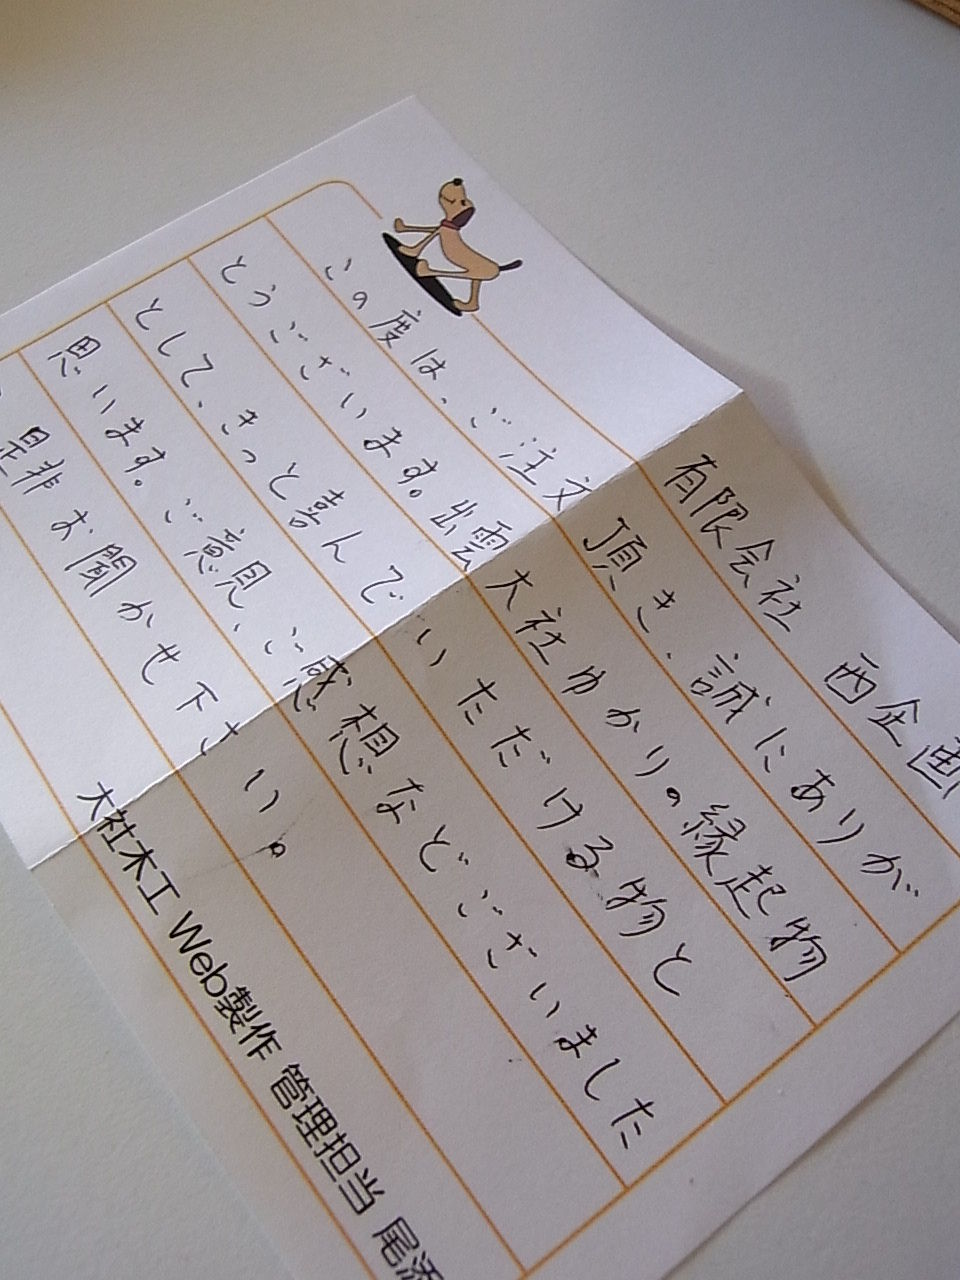 有限会社 西企画
この度は、ご注文頂き、誠にありが
とうございます。出雲大社ゆかりの縁起物
として、きっと喜んでいただける物と
思います。ご意見、ご感想などございました
是非お聞かせ下さい。
大社木工 Web製作 管理担当 尾添